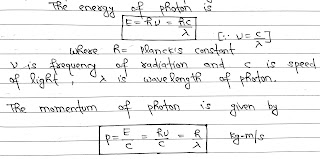 The energy of photon is
E = hν = hc/λ [∵ ν = c/λ]
where h = Planck's constant
ν is frequency of radiation and c is speed
of light, λ is wavelength of photon.
The momentum of photon is given by
p = E/c = hν/c = h/λ kg-m/s